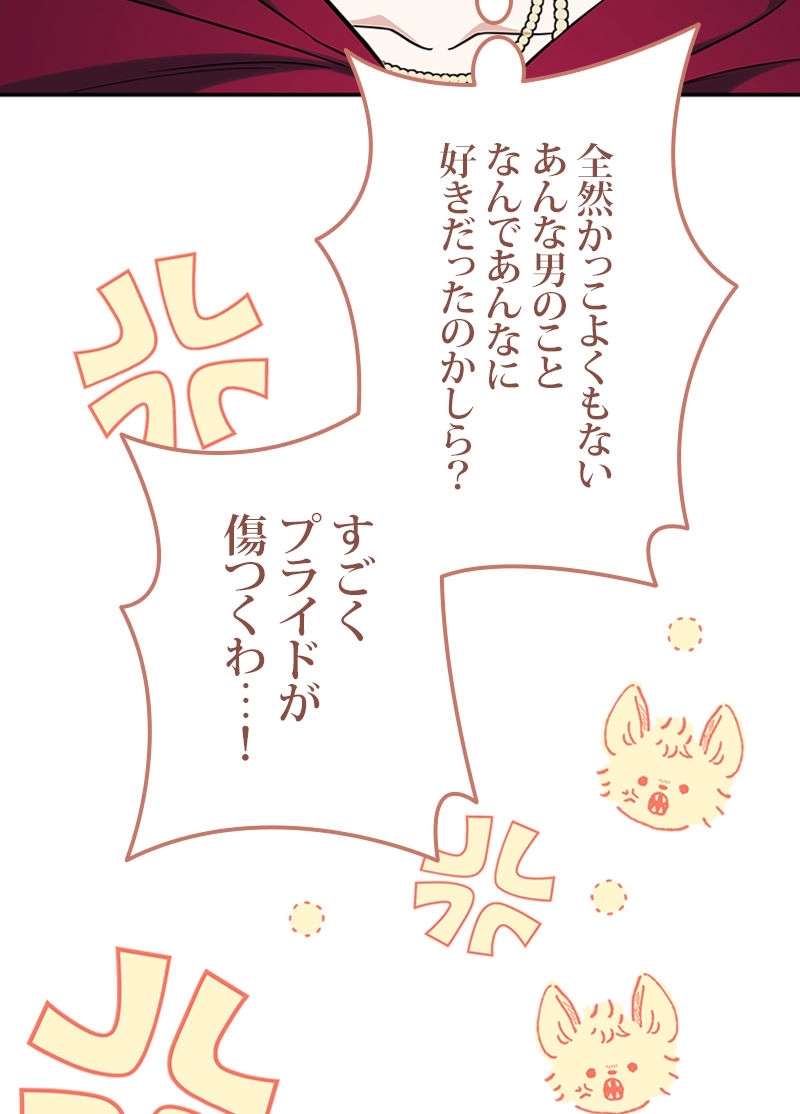 全然かっこよくもない
あんな男のこと
なんであんなに
好きだったのかしら？
すごく
プライドが
傷つくわ…！